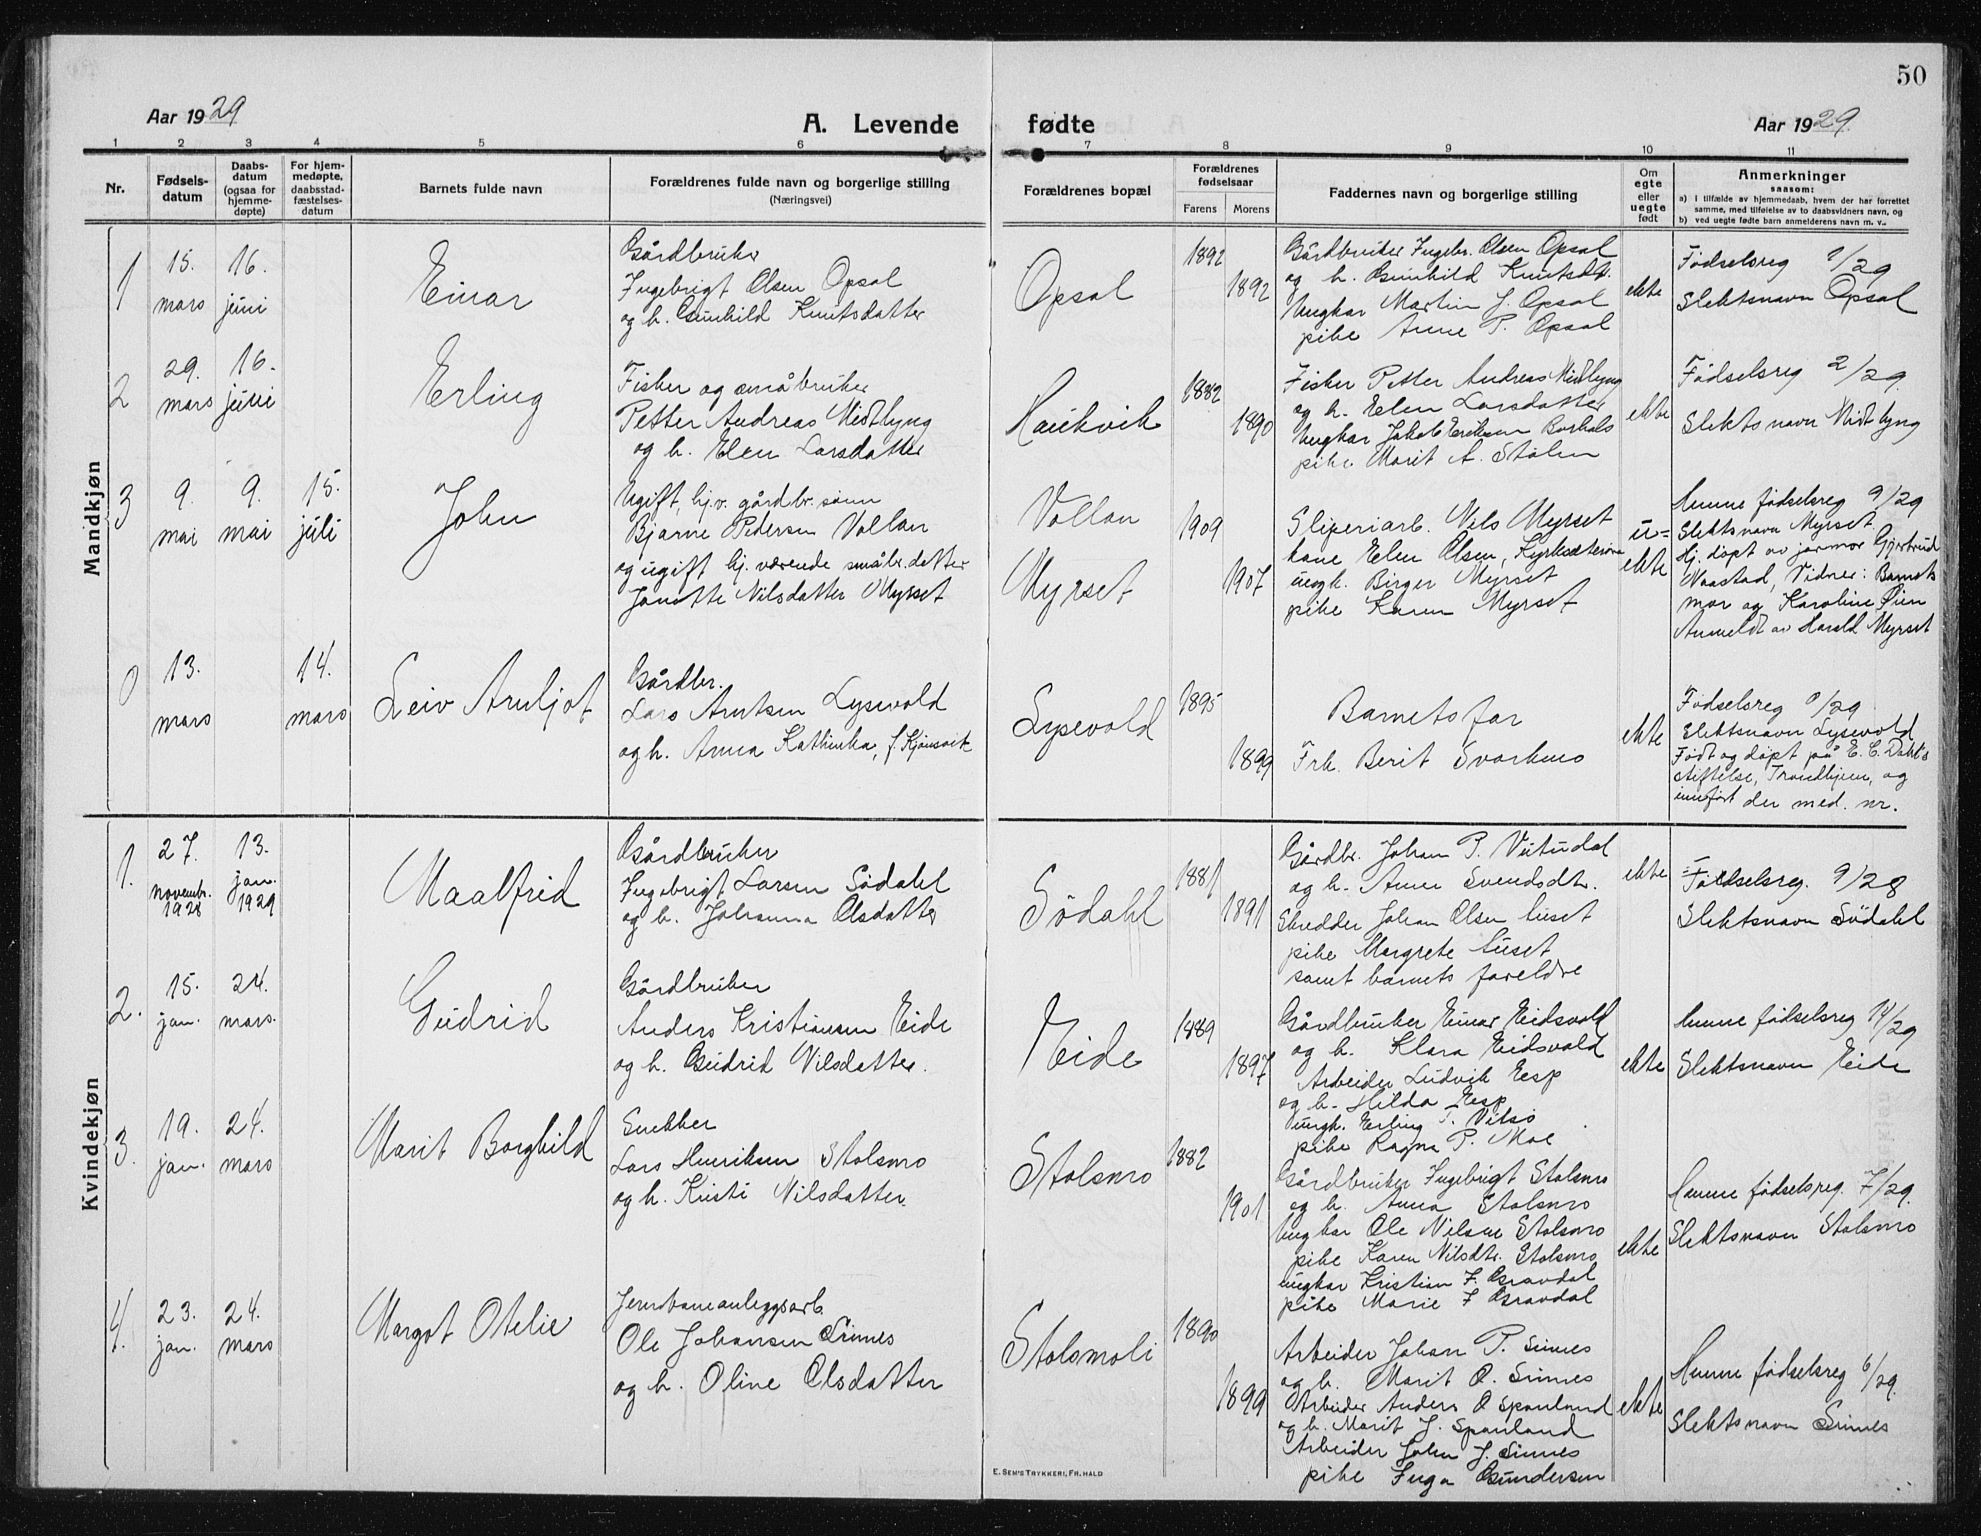 50
Aar 1929
A. Levende fødte
Aar 1929.
1 2 3 4 5 6 7 8 9 10 11
Nr.
Fødsels-
datum
Daabs-
datum
(ogsaa for
hjemme-
døpte)
For hjem-
medøpte,
daabsstad-
fæstelses-
datum
Barnets fulde navn
Forældrenes fulde navn og borgerlige stilling
(Næringsvei)
Forældrenes bopæl
Forældrenes
fødselsaar
Farens Morens
Faddernes navn og borgerlige stilling
Om
egte
eller
uegte
født
Anmerkninger
saasom:
a) i tilfælde av hjemmedaab, hvem der har forrettet
samme, med tilføielse av to daabsvidners navn, og
b) ved uegte fødte barn anmelderens navn m. v..
Mandkjøn
1
15.
mars
16.
juni
Einar
Gårdbruker
Ingebrigt Olsen Opsal
og h. Gunhild Knutsdatter
Opsal
1892
1892
Gårdbruker Ingebr. Olsen Opsal
og h. Gunhild Knutsdtr.
Ungkar Martin J. Opsal
pike Anne P. Opsal
ekte
Fødselsreg 1/29
Slektsnavn Opsal
2
29.
mars
16.
juni
Erling
Fisker og småbruker
Petter Andreas Midtlyng
og h. Elen Larsdatter
Haukvik
1882
1890
Fisker Petter Andreas Midtlyng
og h. Elen Larsdatter
Ungkar Jakob Eriksen Borhals
pike Marit A. Stølen
ekte
Fødselsreg 2/29.
Slektsnavn Midtlyng
3
9.
mai
9.
mai
15.
juli
John
Ugift, hjv. gårdbr. sønn
Bjarne Pedersen Vollan
og ugift hj. værende småbr. datter
Janette Nilsdatter Myrset
Vollan
Myrset
1909
1907
Sliperiarb. Nils Myrset
kone Elen Olsen, Kyrksæterøra
ungk. Birger Myrset
pike Karen Myrset
u=
ekte
Hemne fødselsreg 9/29
Slektsnavn Myrset.
Hj. døpt av jormor Gjertrud
Vaastad, Vidner: Barnets
mor og Karoline Øien
Anmeldt av Harald Myrset
0
13.
mars
14.
mars
Leiv Arnljot
Gårdbr.
Lars Arntsen Lysevold
og h. Anna Kathinka, f. Kjønsvik
Lysevold
1895
1899
Barnets far
Frk. Berit Svorkmo
ekte
Fødselsreg 0/29
Slektsnavn Lysevold
Født og døpt på E. C. Dahl's
stiftelse, Trondhjem, og
innført der med. nr.
Kvindekjøn
1.
27.
novembr.
1928
13.
jan.
1929
Maalfrid
Gårdbruker
Ingebrigt Larsen Södahl
og h. Johanna Olsdatter
Södahl
1881
1891
Gårdbr. Johan P. Vitudal
og h. Anne Svendsdtr.
Skredder Johan Olsen Luset
pike Margrete Luset
samt barnets foreldre
ekte
Fødselsreg. 9/28
Slektsnavn Södahl
2.
15.
jan.
24.
mars.
Gudrid
Gårdbruker
Anders Kristiansen Eide
og h. Gudrid Nilsdatter.
Eide
1889
1897
Gårdbruker Einar Eidsvold
og h. Klara Eidsvold
Arbeider Ludvik Eesp
og h. Hilda Eesp
Ungk. Erling T. Vitsø
pike Ragna P. Moe
ekte
Hemne fødselsreg 14/29
Slektsnavn Eide
3.
19.
jan.
24.
mars
Marit Borghild
Snekker
Lars Henriksen Stolsmo
og h. Kristi Nilsdatter.
Stolsmo
1882
1901
Gårdbruker Ingebrigt Stolsmo
og h. Anna Stolsmo
Ungkar Ole Nilsen Stolsmo
pike Karen Nilsdtr. Stolsmo
ungkar Kristian F. Gravdal
pike Marie F Gravdal
ekte
Hemne fødselsreg. 7/29.
Slektsnavn Stolsmo
4.
23.
jan.
24.
mars
Margot Otelie
Jernbaneanleggsarb.
Ole Johansen Sinnes
og h. Oline Olsdatter
Stolsmoli
1890
1899
Arbeider Johan P. Sinnes
og h. Marit O. Sinnes
Arbeider Anders O Spanland
og h. Marit J. Spanland
Arbeider John J. Sinnes
pike Inga Gundersen
ekte
Hemne fødselsreg 6/29.
Slektsnavn Sinnes
E. SEM'S TRYKKERI, FR.HALD